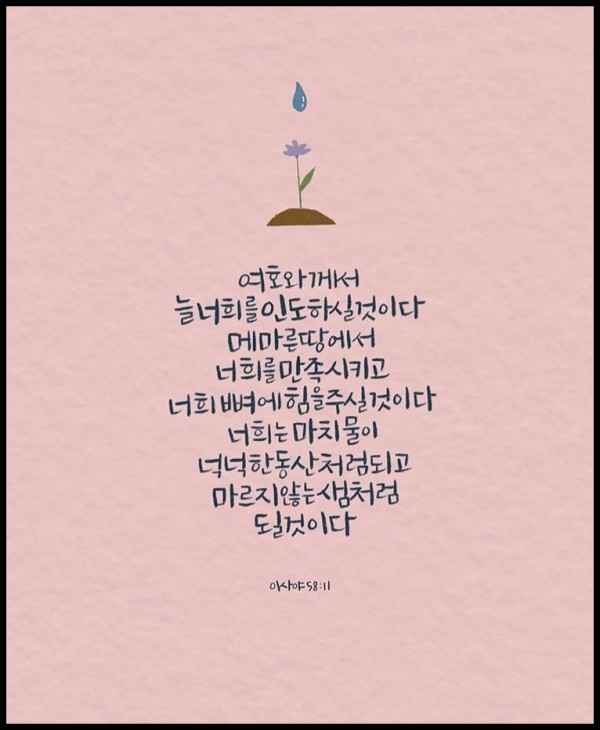 여호와께서
늘 너희를 인도하실것이다
메마른 땅에서
너희를 만족시키고
너희 뼈에 힘을 주실것이다
너희는 마치 물이
넉넉한 동산처럼 되고
마르지 않는 샘처럼
될것이다
이사야 58:11